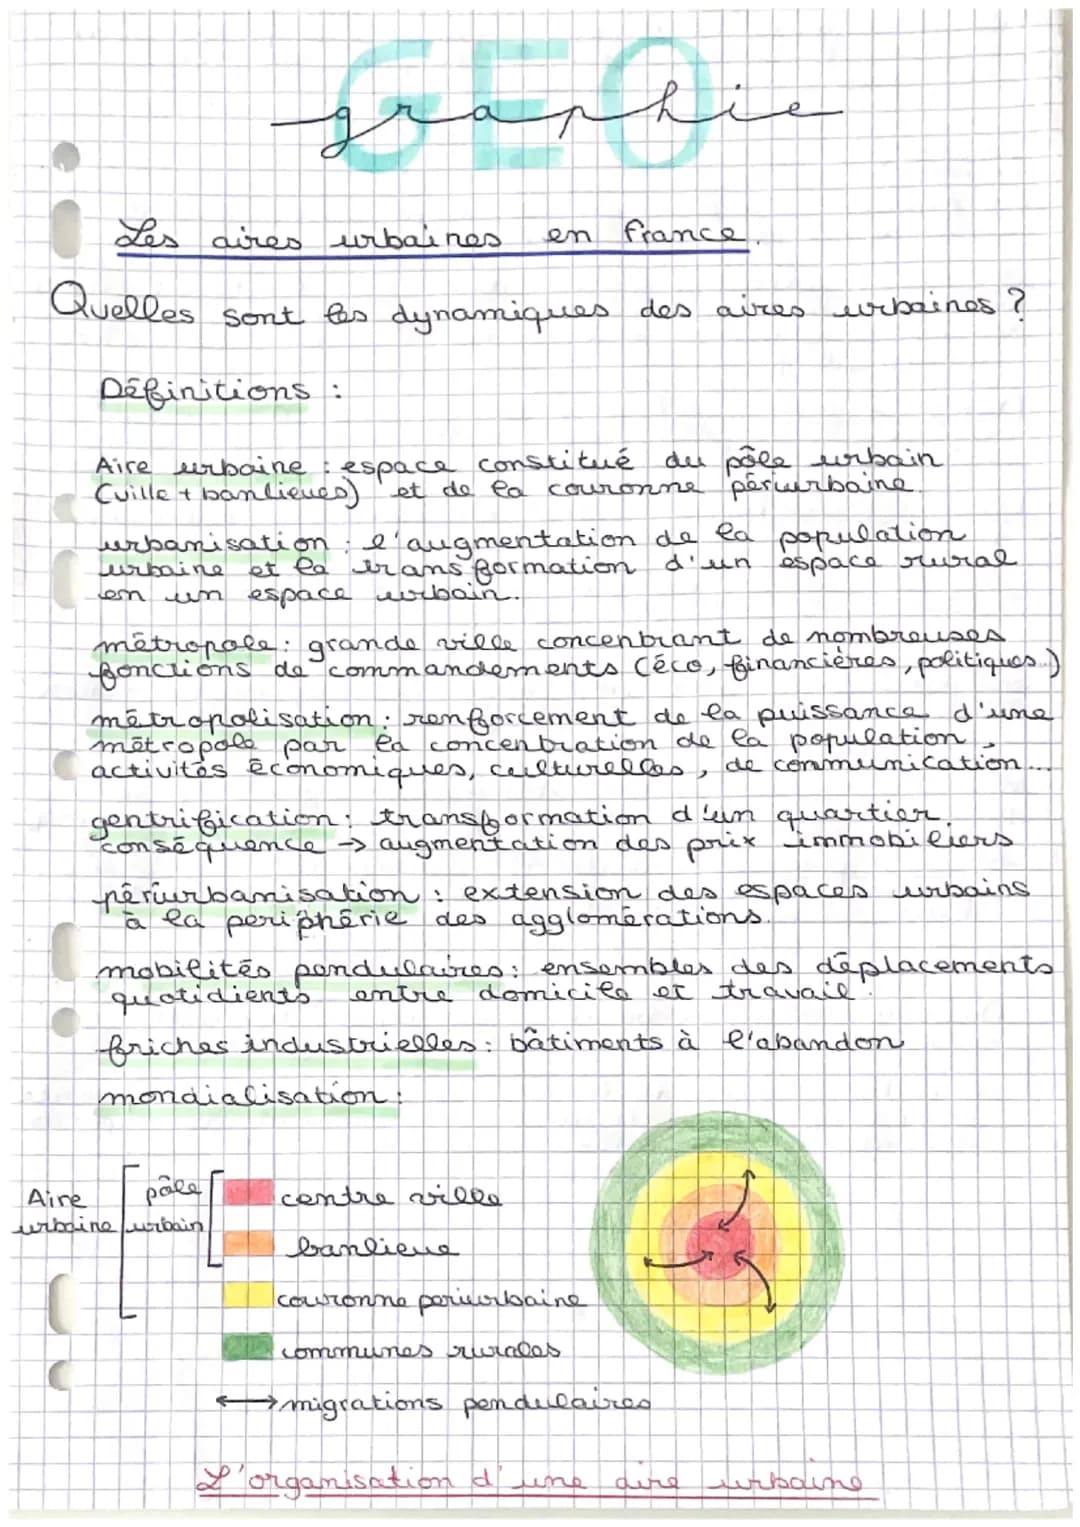 GEO
graphie
Les aires urbaines en france.
Quelles sont les dynamiques des aires urbaines ?
Définitions :
Aire urbaine : espace constitué du pôle urbain
(ville + banlieues) et de la couronne périurbaine.
urbanisation : l'augmentation de la population
urbaine et la transformation d'un espace rural
en un espace urbain.
métropole : grande ville concentrant de nombreuses
fonctions de commandements (éco, financières, politiques..)
métropolisation : renforcement de la puissance d'une
métropole par la concentration de la population,
activités économiques, culturelles, de communication...
gentrification : transformation d'un quartier.
conséquence → augmentation des prix immobiliers
périurbanisation : extension des espaces urbains
à la periphérie des agglomérations.
mobilités pendulaires : ensembles des déplacements
quotidients entre domicile et travail.
friches industrielles : bâtiments à l'abandon
mondialisation :
Aire urbaine
pôle urbain
centre ville
banlieue
couronne periurbaine
communes rurales
↔ migrations pendulaires
L'organisation d'une aire urbaine